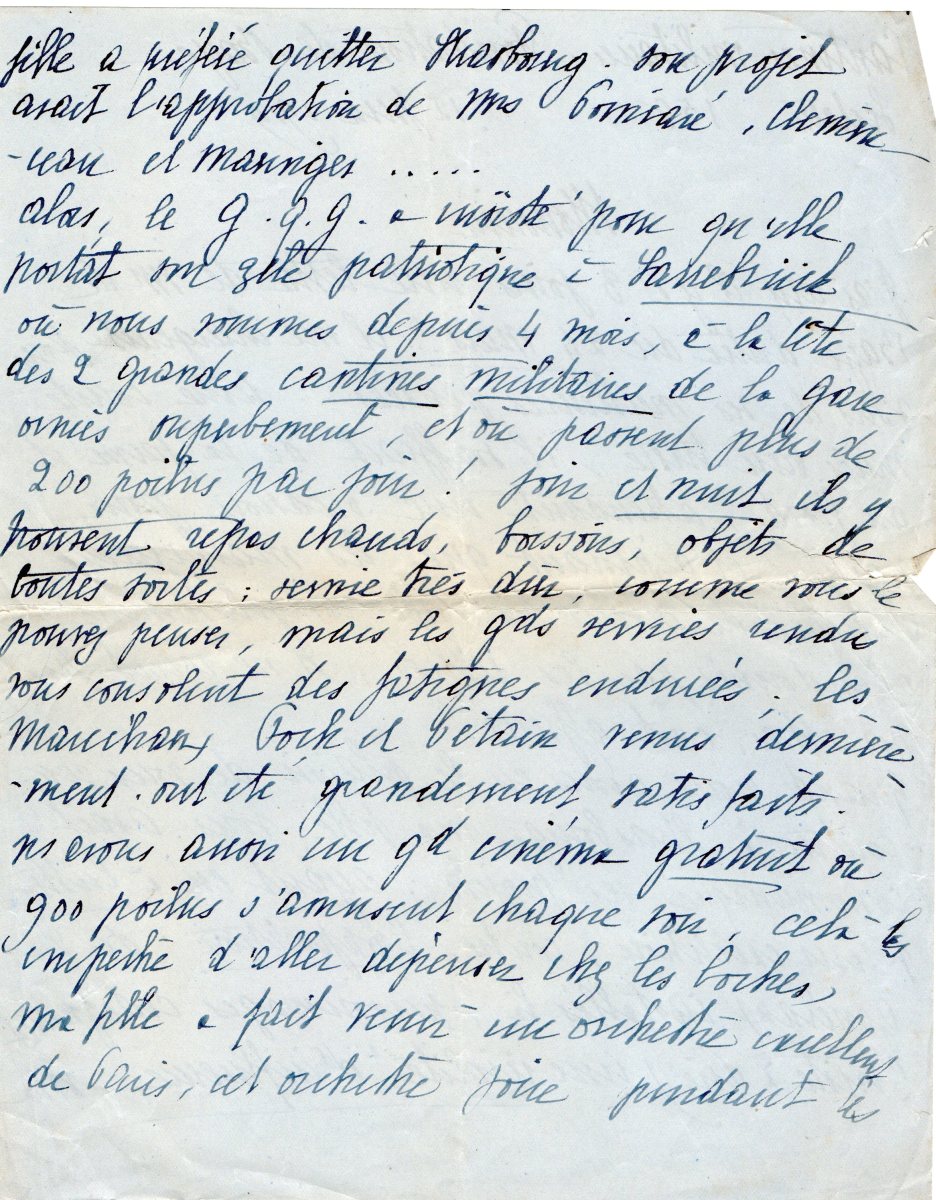 fille a préféré quitter Strasbourg. son projet
avait l'approbation de Mrs Poincaré, Clemen
-ceau et Maringer .....
alors, le G.Q.G. a insisté pour qu'elle
portât son zèle patriotique à Sarrebrück
où nous sommes depuis 4 mois, à la tête
des 2 grandes cantines militaires de la gare
ornées superbement, et où passent plus de
200 poilus par jour! jour et nuit ils y
trouvent repas chauds, boissons, objets de
toutes sortes; service très dur, comme vous le
pouvez penser, mais les gds services rendus
vous consolent des fatigues endurées. les
Maréchaux Foch et Pétain venus dernière-
-ment ont été grandement satisfaits.
ns avons aussi un gd cinéma gratuit où
900 poilus s'amusent chaque soir, celà les
empêche d'aller dépenser chez les boches,
ma fille a fait venir un orchestre excellent
de Paris, cet orchestre joue pendant les